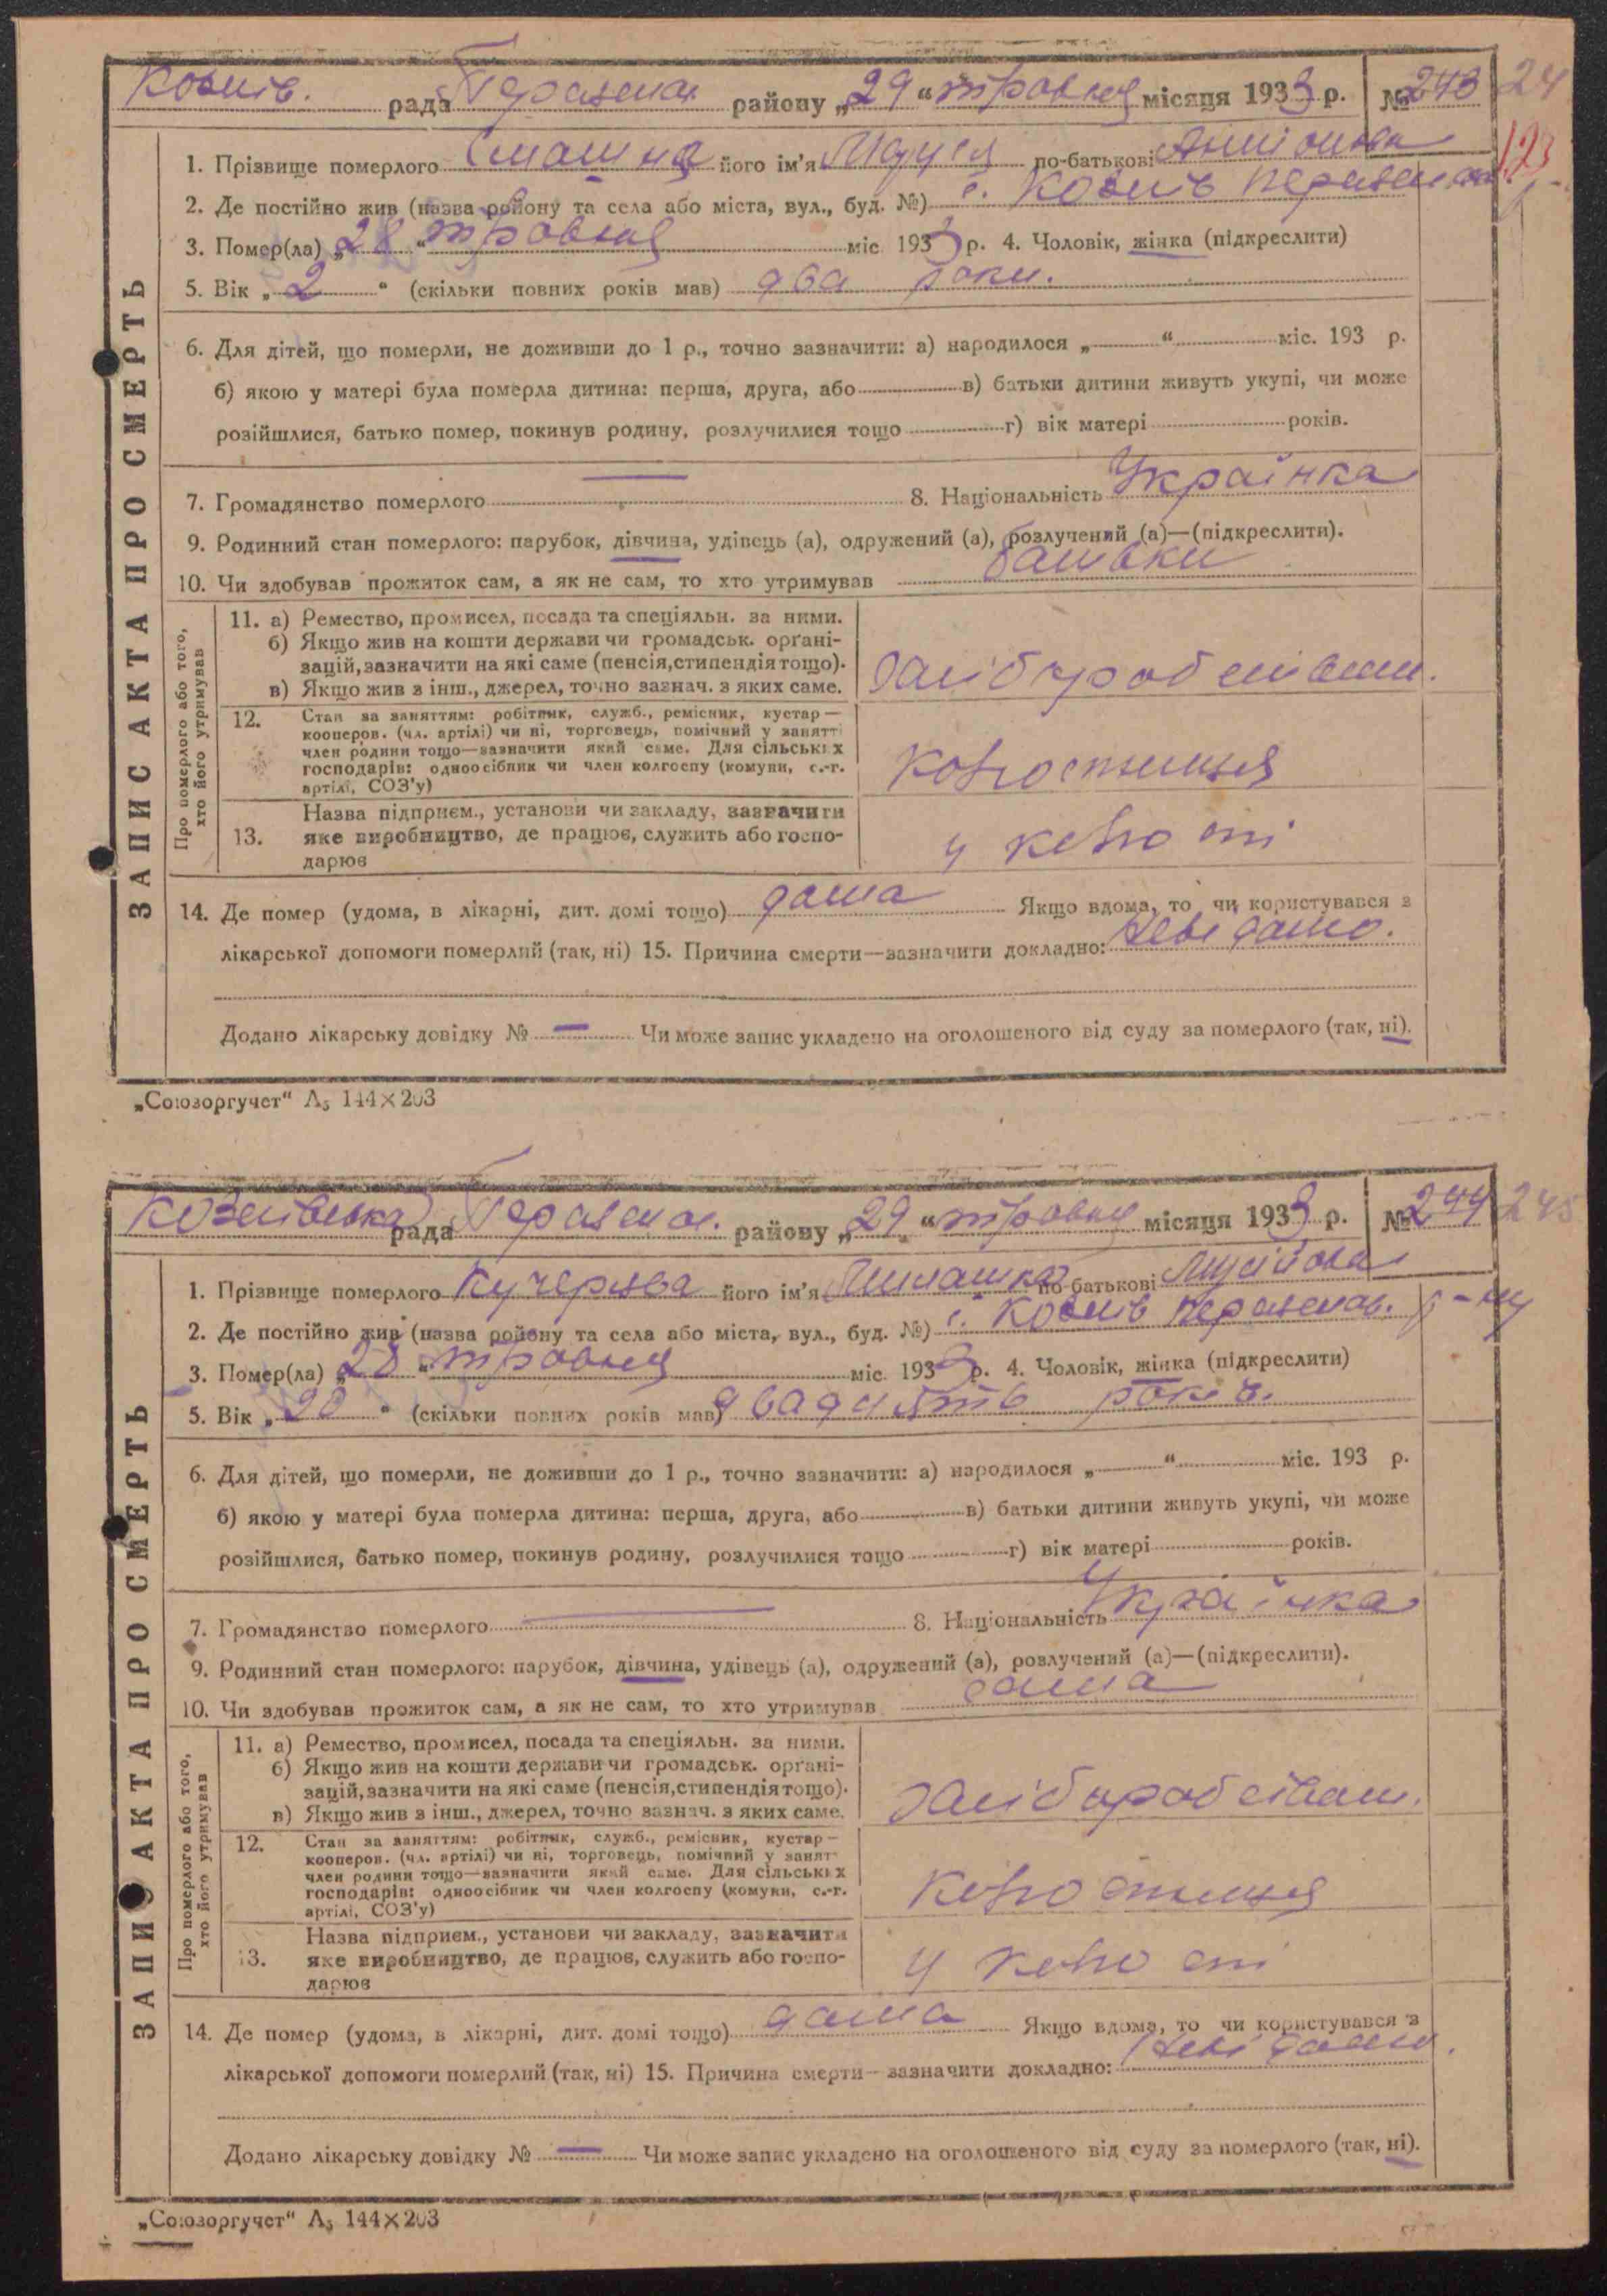 рада район у „29“ травня місяця 1933 р. № 243
1. Прізвище померлого його ім'я по-батькові
2. Де постійно жив (назва району та села або міста, вул., буд. №) с.
3. Помер(ла) „28“ травня міс 1933 р. 4. Чоловік, жінка (підкреслити)
5. Вік „2“ (скільки повних років мав) два роки.
6. Для дітей, що померли, не доживши до 1 р., точно зазначити: а) народилося „ “ міс. 193 р.
б) якою у матері була померла дитина: перша, друга, або в) батьки дитини живуть укупі, чи може
розійшлися, батько помер, покинув родину, розлучилися тощо г) вік матері років.
7. Громадянство померлого — 8. Національність Українка
9. Родинний стан померлого: парубок, дівчина, удівець (а), одружений (а), розлучений (а)—(підкреслити).
10. Чи здобував прожиток сам, а як не сам, то хто утримував батьки
ЗАПИС АКТА ПРО СМЕРТЬ
Про померлого або того,
хто його утримував
11. а) Ремество, промисел, посада та спеціяльн. за ними.
б) Якщо жив на кошти держави чи громадськ. органі-
зацій, зазначити на які саме (пенсія, стипендія тощо).
в) Якщо жив з інш., джерел, точно зазнач. з яких саме.
12. Стан за заняттям: робітник, служб., ремісник, кустар—
кооперов. (чл. артілі) чи ні, торговець, помічний у занятті
член родини тощо—зазначити який саме. Для сільських
господарів: одноосібник чи член колгоспу (комуни, с.-г.
артілі, СОЗ'у)
13. Назва підприєм., установи чи закладу, зазначити
яке виробництво, де працює, служить або госпо-
дарює
14. Де помер (удома, в лікарні, дит. домі тощо) дома Якщо вдома, то чи користувався з
лікарської допомоги померлий (так, ні) 15. Причина смерти—зазначити докладно: Невідомо.
Додано лікарську довідку № — Чи може запис укладено на оголошеного від суду за померлого (так, ні).
„Союзоргучет“ А5 144×203
рада району „29“ травня місяця 1933 р. № 244 245
1. Прізвище померлого Кучерява його ім'я по-батькові
2. Де постійно жив (назва району та села або міста, вул., буд. №) с.
3. Помер(ла) „28“ травня міс. 1933 р. 4. Чоловік, жінка (підкреслити)
5. Вік „20“ (скільки повних років мав) двадцять років.
6. Для дітей, що померли, не доживши до 1 р., точно зазначити: а) народилося „ “ міс. 193 р.
б) якою у матері була померла дитина: перша, друга, або в) батьки дитини живуть укупі, чи може
розійшлися, батько помер, покинув родину, розлучилися тощо г) вік матері років.
7. Громадянство померлого — 8. Національність Українка
9. Родинний стан померлого: парубок, дівчина, удівець (а), одружений (а), розлучений (а)—(підкреслити).
10. Чи здобував прожиток сам, а як не сам, то хто утримував сама
ЗАПИС АКТА ПРО СМЕРТЬ
Про померлого або того,
хто його утримував
11. а) Ремество, промисел, посада та спеціяльн. за ними.
б) Якщо жив на кошти держави чи громадськ. органі-
зацій, зазначити на які саме (пенсія, стипендія тощо).
в) Якщо жив з інш., джерел, точно зазнач. з яких саме.
12. Стан за заняттям: робітник, служб., ремісник, кустар—
кооперов. (чл. артілі) чи ні, торговець, помічний у занят
член родини тощо—зазначити який саме. Для сільських
господарів: одноосібник чи член колгоспу (комуни, с.-г.
артілі, СОЗ'у)
13. Назва підприєм., установи чи закладу, зазначити
яке виробництво, де працює, служить або госпо-
дарює
14. Де помер (удома, в лікарні, дит. домі тощо) дома Якщо вдома, то чи користувався з
лікарської допомоги померлий (так, ні) 15. Причина смерти—зазначити докладно: Невідомо.
Додано лікарську довідку № — Чи може запис укладено на оголошеного від суду за померлого (так, ні).
„Союзоргучет“ А5 144×203